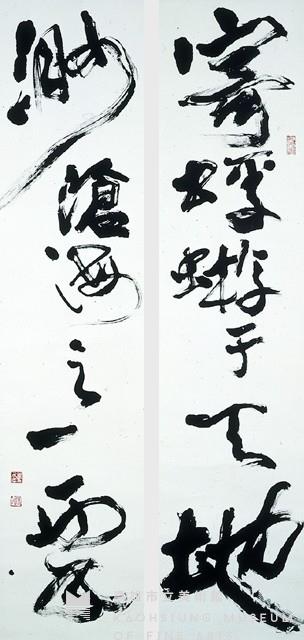 寄蜉蝣于天地
渺滄海之一粟
高雄市立美術館
KAOHSIUNG MUSEUM
OF FINE ARTS